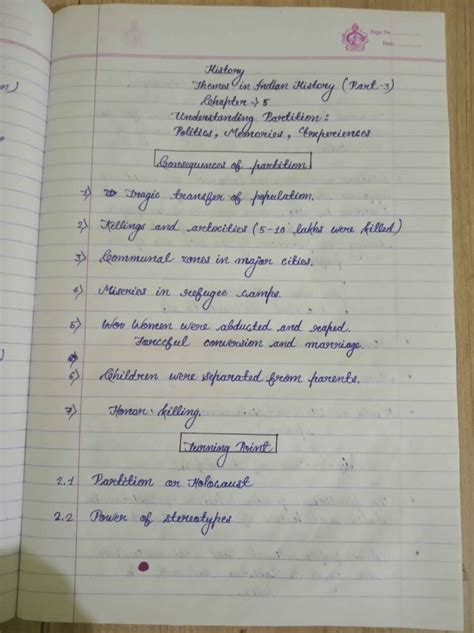 Page No.
Date
History
Themes in Indian History (Part-3)
Chapter → 5
Understanding Partition:
Politics, Memories, Experiences
Consequences of partition
1) Tragic transfer of population.
2) Killings and artocities (5-10 lakhs were killed)
3) Communal zones in major cities.
4) Miseries in refugee camps.
5) Women were abducted and raped.
Forceful conversion and marriage.
6) Children were separated from parents.
7) Honor killing.
Turning Point
2.1 Partition or Holocaust
2.2 Power of stereotypes